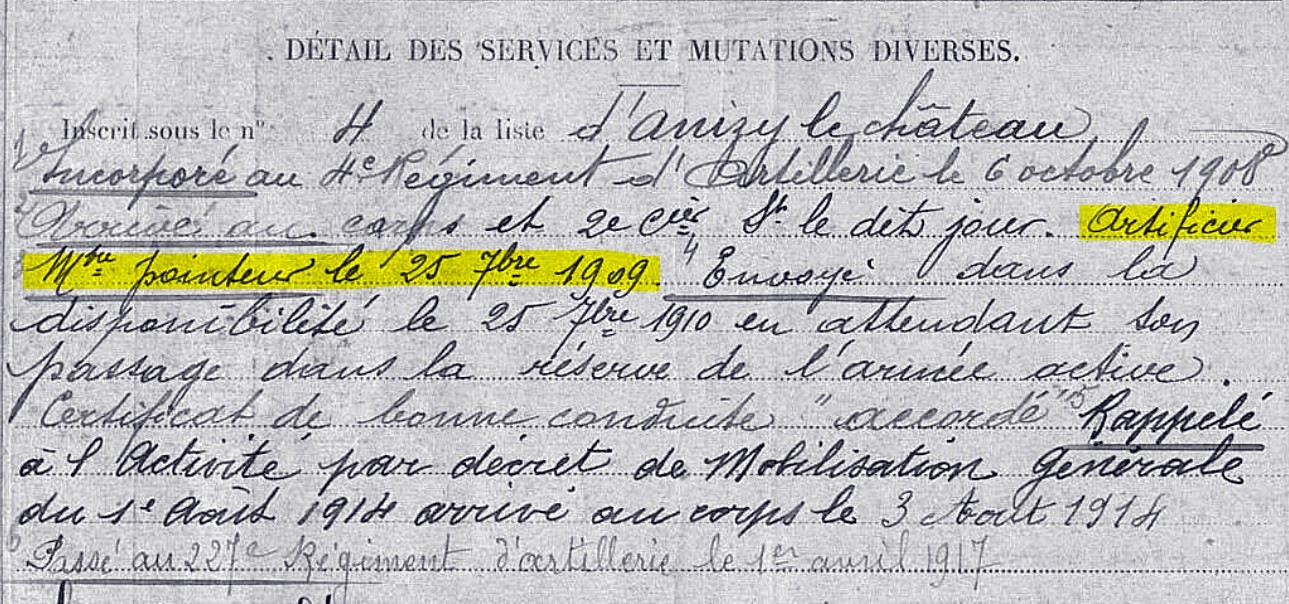 DÉTAIL DES SERVICES ET MUTATIONS DIVERSES.
Inscrit sous le n° 4 de la liste d'Anizy le château
1° Incorporé au 4e Régiment d'Artillerie le 6 octobre 1908
2 Arrivé au corps et 2e Cer St le dit jour. Artificier
Mtre pointeur le 25 7bre 1909. 4 Envoyé dans la
disponibilité le 25 7bre 1910 en attendant son
passage dans la réserve de l'armée active.
Certificat de bonne conduite "accordé" 5 Rappelé
à l'Activité par décret de Mobilisation Générale
du 1e Août 1914 arrivé au corps le 3 Aout 1914
6 Passé au 227e Régiment d'artillerie le 1er avril 1917